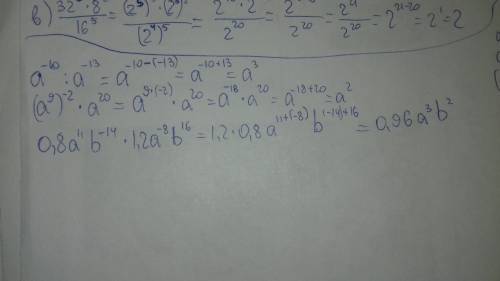 в) 32 · 8 / 16⁵ = (2⁵) · (2³) / (2⁴)⁵ = · 2 / 2²⁰ = / 2²⁰ = 2²¹ / 2²⁰ = 2²¹⁻²⁰ = 2¹ = 2
a⁻¹⁰ : a⁻¹³ = a⁻¹⁰⁻⁽⁻¹³⁾ = a⁻¹⁰⁺¹³ = a³
(a⁹)⁻² · a²⁰ = a⁹·⁽⁻²⁾ · a²⁰ = a⁻¹⁸ · a²⁰ = a⁻¹⁸⁺²⁰ = a²
0,8a¹¹b⁻¹⁴ · 1,2a⁻⁸b¹⁶ = 1,2 · 0,8a¹¹⁺⁽⁻⁸⁾b⁽⁻¹⁴⁾⁺¹⁶ = 0,96a³b²